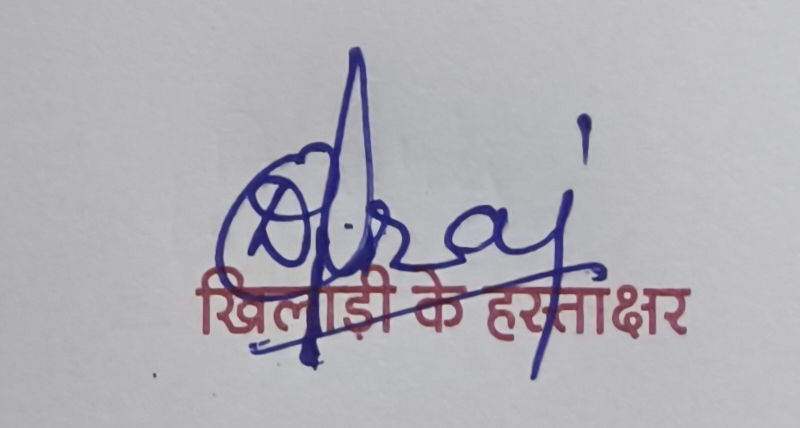 Dhiraj
खिलाड़ी के हस्ताक्षर